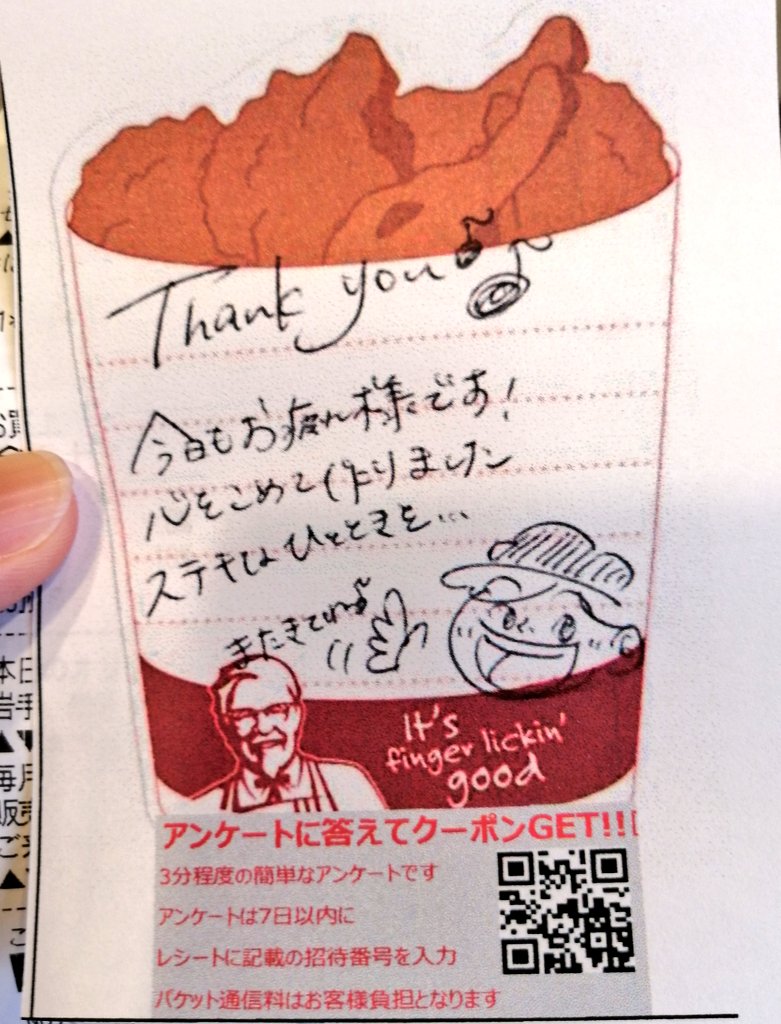 Thank you
今日もお疲れ様です!
心をこめて作りました
ステキなひとときを…
またきてね♪
It's
finger lickin'
good
アンケートに答えてクーポンGET!!
3分程度の簡単なアンケートです
アンケートは7日以内に
レシートに記載の招待番号を入力
パケット通信料はお客様負担となります
本日
岩手
毎月
販売